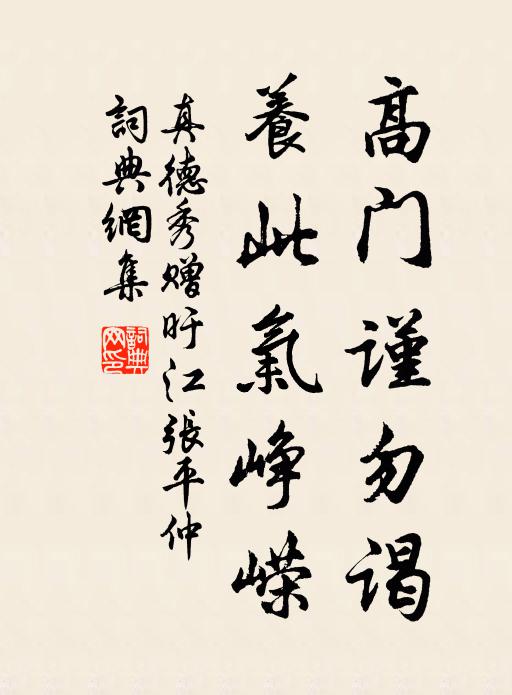 高门谨勿谒
養此氣峥嵘
真德秀赠盱江張平仲
詞典網集
詞典网印